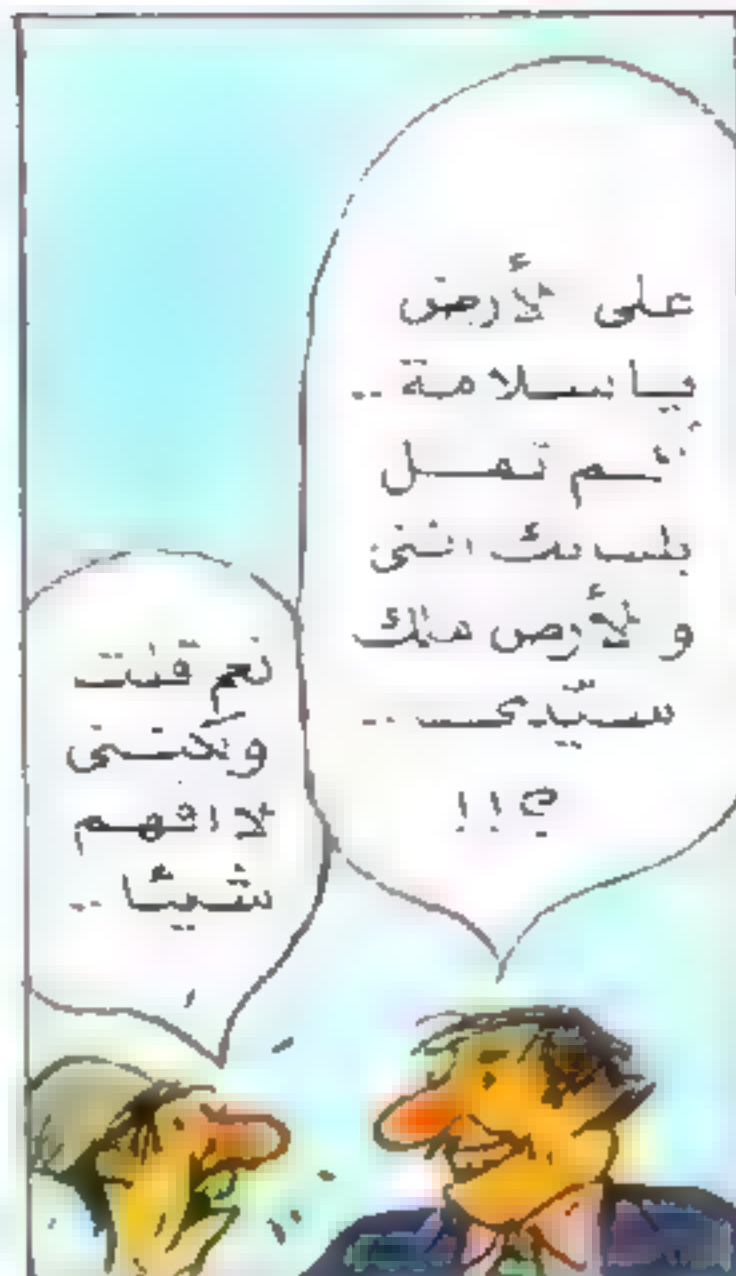 على الأرض
يا سلامة ..
ألم تقل
بلسانك انني
والأرض ملك
سيّدى ..
؟!!
نعم قلت
ولكننى
لا افهم
شيئا ..